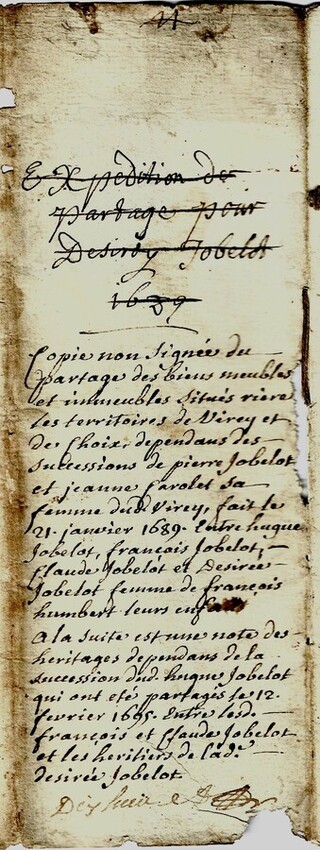 Expedition de
partage pour
Desirey Jobelot
1689
Copie non signée du
partage des biens meubles
et immeubles situés riere
les territoires de Virey et
de Choix, dependans des
successions de pierre Jobelot
et jeanne Carolet sa
femme dud. Virey, fait le
21. janvier 1689. Entre hugue
Jobelot, françois Jobelot,
Claude Jobelot et Desirée
Jobelot femme de françois
humbert leurs enfans
a la suite est une note des
heritages dependans de la
succession dud. hugue Jobelot
qui ont eté partagés le 12.
fevrier 1695. Entre lesd.
françois et Claude Jobelot
et les heritiers de lade.
desirée Jobelot